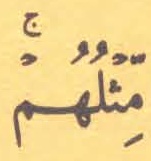 مِّثْلُهُمْ ۚ